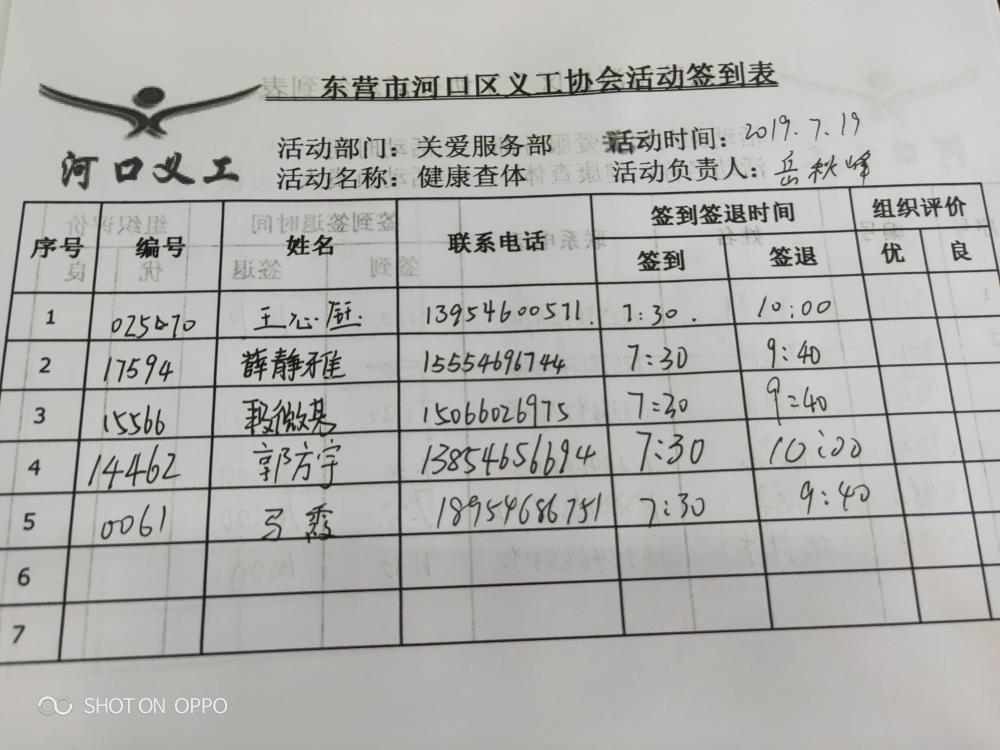 东营市河口区义工协会活动签到表
河口义工
活动部门：关爱服务部 活动时间：2019.7.19
活动名称：健康查体 活动负责人：岳秋峰
序号 编号 姓名 联系电话 签到签退时间 组织评价
签到 签退 优 良
1 13954600571. 7:30. 10:00
2 17594 薛静雅 15554696744 7:30 9:40
3 15566 15066026975 7:30 9:40
4 14462 郭方宇 13854656694 7:30 10:00
5 0061 马霞 18954686751 7:30 9:40
6
7
SHOT ON OPPO